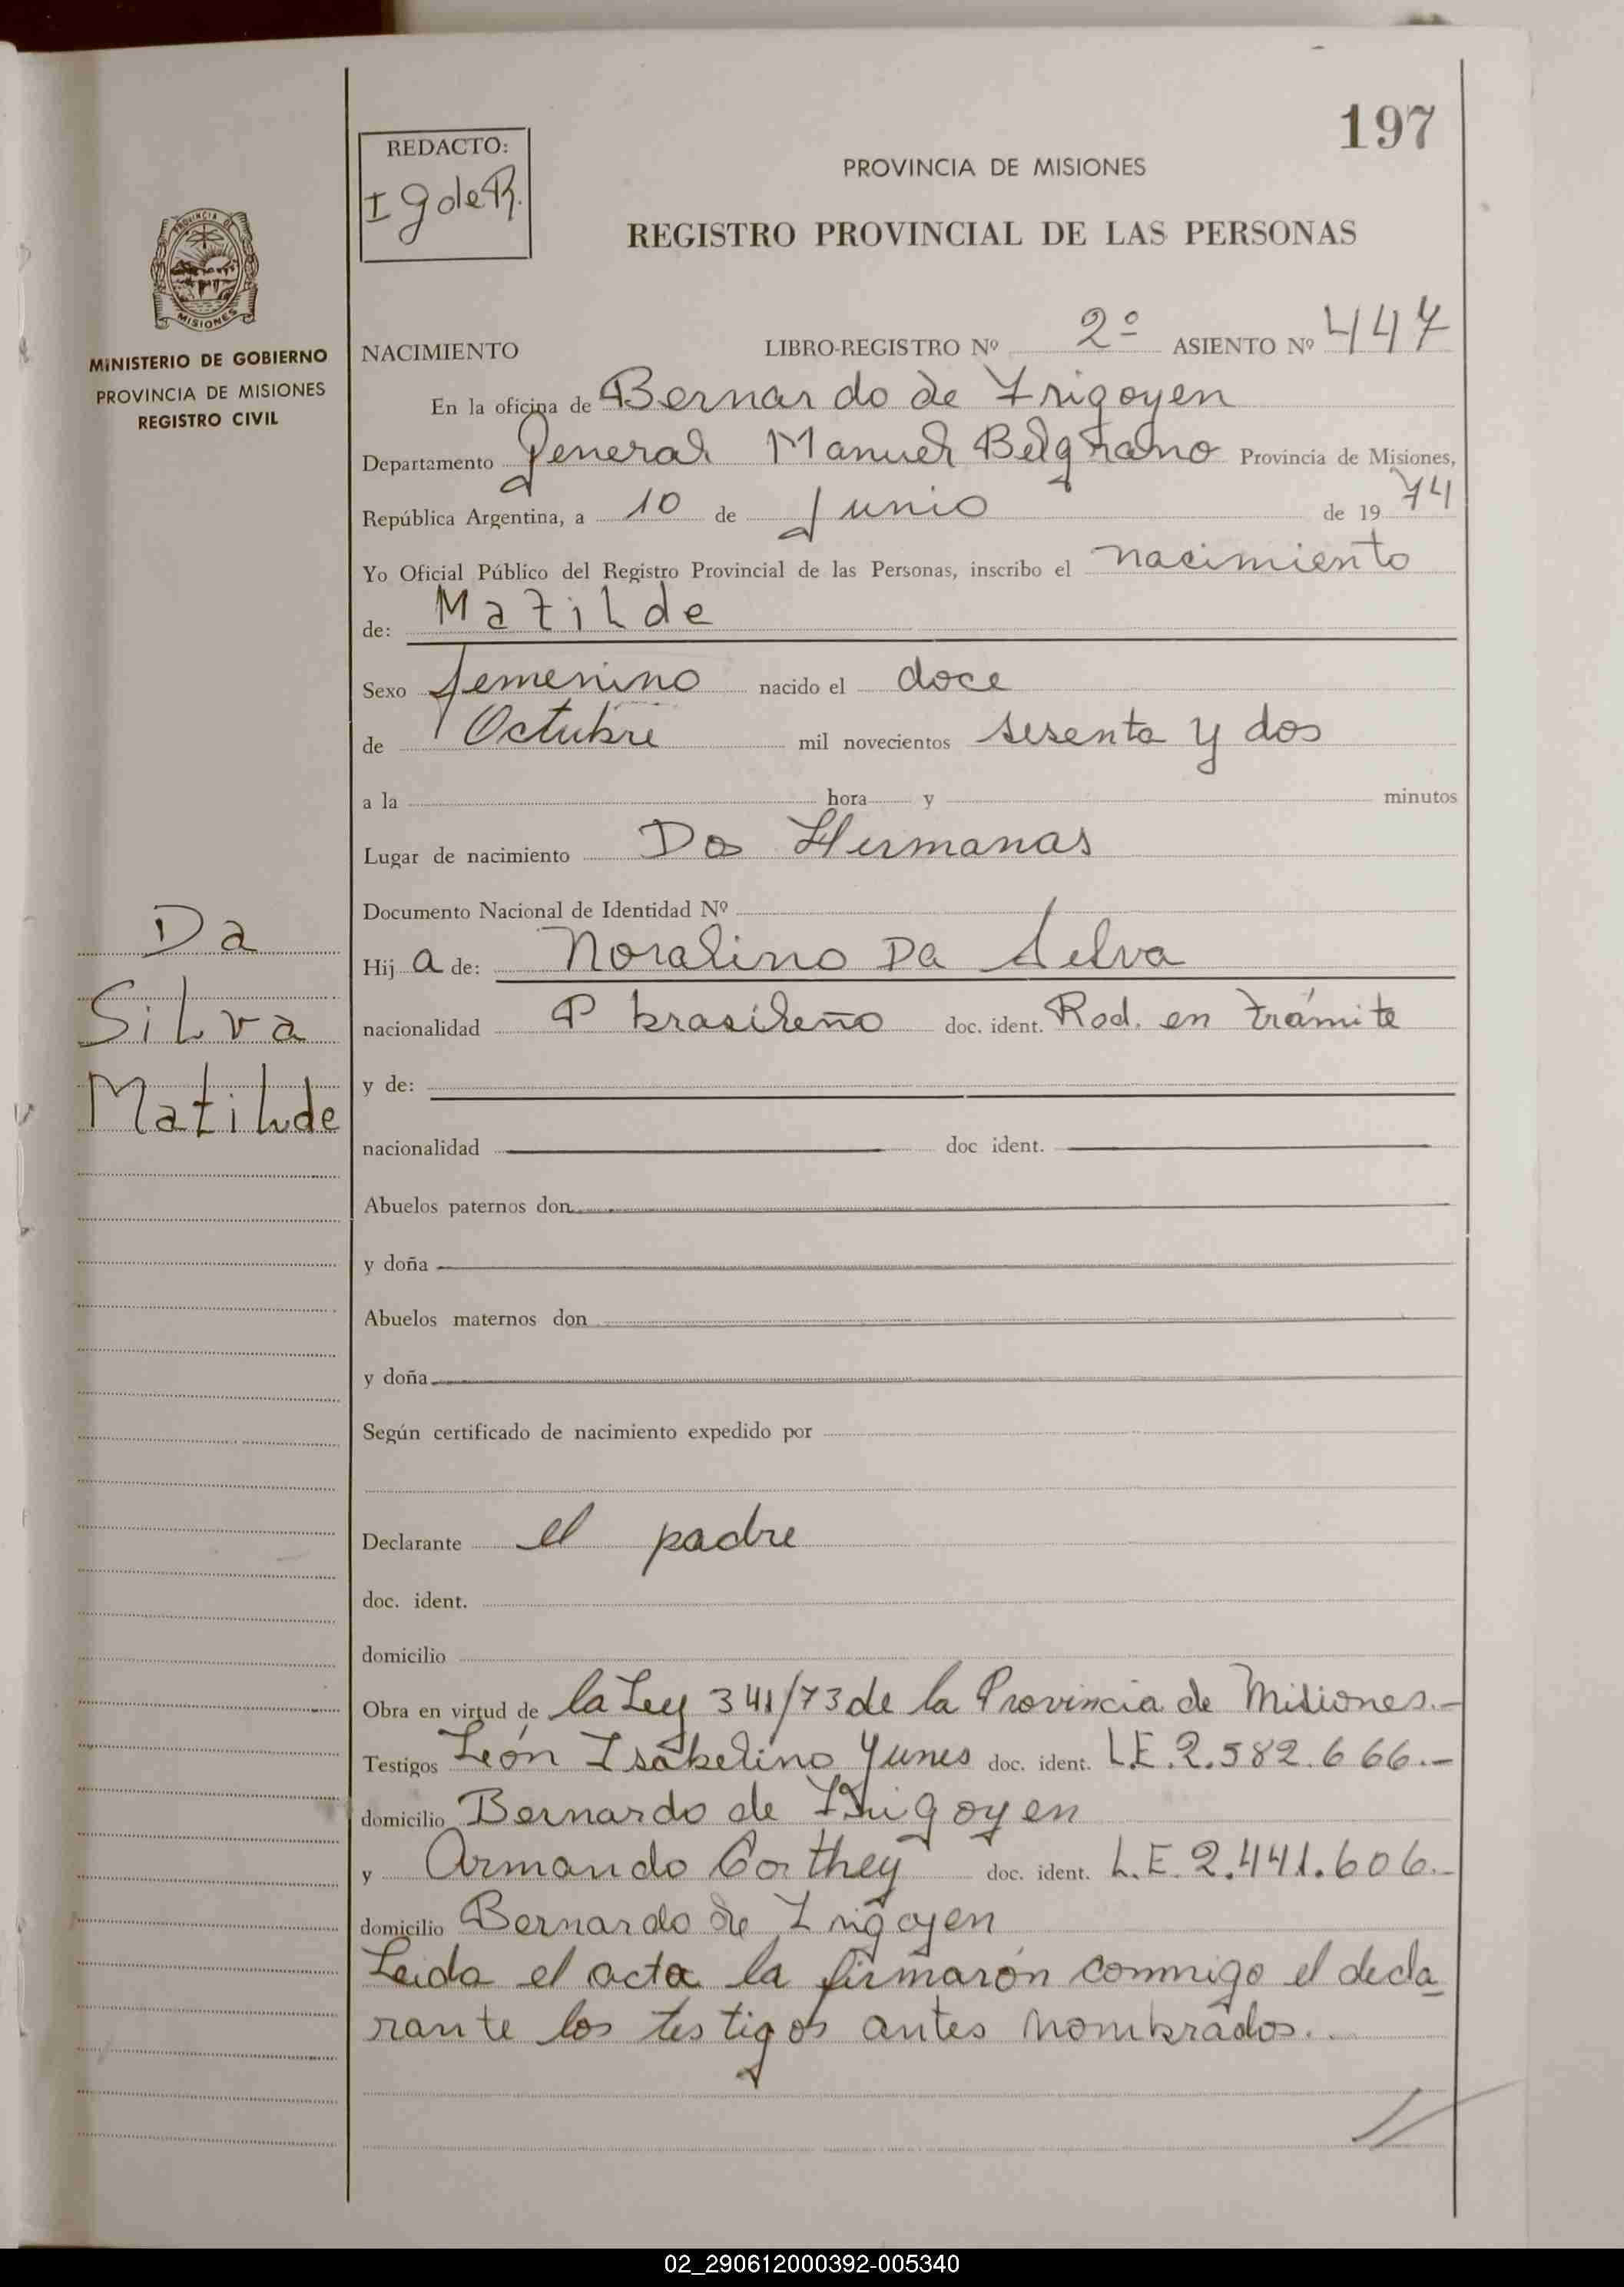 197
REDACTO:
I g de R.
PROVINCIA DE MISIONES
REGISTRO PROVINCIAL DE LAS PERSONAS
PROVINCIA DE
MISIONES
MINISTERIO DE GOBIERNO
PROVINCIA DE MISIONES
REGISTRO CIVIL
NACIMIENTO LIBRO-REGISTRO Nº 2º ASIENTO Nº 447
En la oficina de Bernardo de Irigoyen
Departamento General Manuel Belgrano Provincia de Misiones,
República Argentina, a 10 de Junio de 19 74
Yo Oficial Público del Registro Provincial de las Personas, inscribo el nacimiento
de: Matilde
Sexo femenino nacido el doce
de Octubre mil novecientos sesenta y dos
a la hora y minutos
Lugar de nacimiento Dos Hermanas
Documento Nacional de Identidad Nº
Hij a de: Noralino Da Silva
nacionalidad brasileño doc. ident. Rod. en trámite
y de:
nacionalidad doc ident.
Abuelos paternos don
y doña
Abuelos maternos don
y doña
Según certificado de nacimiento expedido por
Declarante el padre
doc. ident.
domicilio
Obra en virtud de la Ley 341/73 de la Provincia de Misiones.-
Testigos León Isabelino Yunes doc. ident. L.E. 2.582.666.-
domicilio Bernardo de Irigoyen
y Armando Corthey doc. ident. L.E. 2.441.606.-
domicilio Bernardo de Irigoyen
Leida el acta la firmarón conmigo el decla
rante los testigos antes nombrados..
Da
Silva
Matilde
02_290612000392-005340